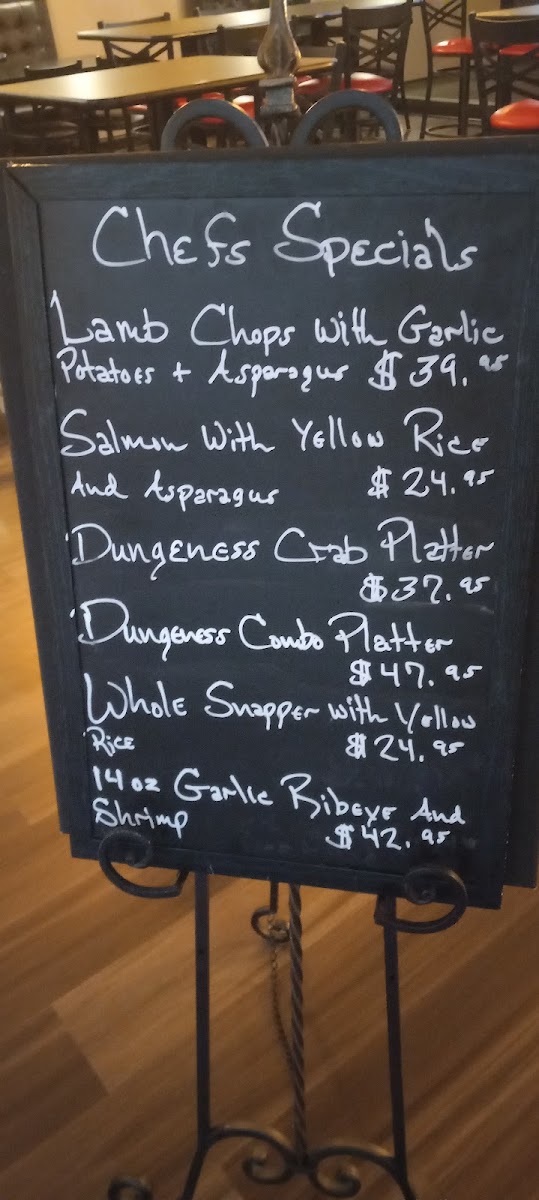 Chefs Specials
Lamb Chops With Garlic
Potatoes + Asparagus $39.95
Salmon With Yellow Rice
And Asparagus $24.95
Dungeness Crab Platter
$37.95
Dungeness Combo Platter
$47.95
Whole Snapper with Yellow
Rice $24.95
14 oz Garlic Ribeye And
Shrimp $42.95